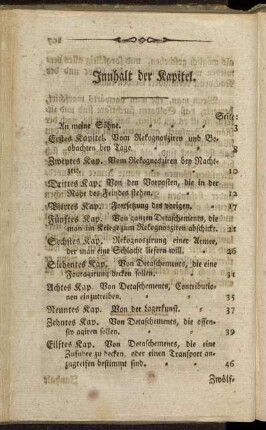 Innhalt der Kapitel.
Seite:
An meine Söhne. 3
Erstes Kapitel. Vom Rekognosziren und Be-
obachten bey Tage. 8
Zweytes Kap. Vom Rekognosziren bey Nacht-
zeit. 10
Drittes Kap. Von den Vorposten, die in der
Nähe des Feindes stehen. 12
Viertes Kap. Fortsetzung des vorigen. 17
Fünftes Kap. Von ganzen Detaschements, die
man im Kriege zum Rekognosziren abschickt. 21
Sechstes Kap. Rekognoszirung einer Armee,
der man eine Schlacht liefern will. 26
Siebentes Kap. Von Detaschements, die eine
Fouragirung decken sollen. 31
Achtes Kap. Von Detaschements, Contributio-
nen einzutreiben. 35
Neuntes Kap. Von der Lagerkunst. 37
Zehntes Kap. Von Detaschements, die offen-
siv agiren sollen. 39
Eilftes Kap. Von Detaschements, die eine
Zufuhre zu decken, oder einen Transport an-
zugreifen bestimmt sind. 46
Zwölf-